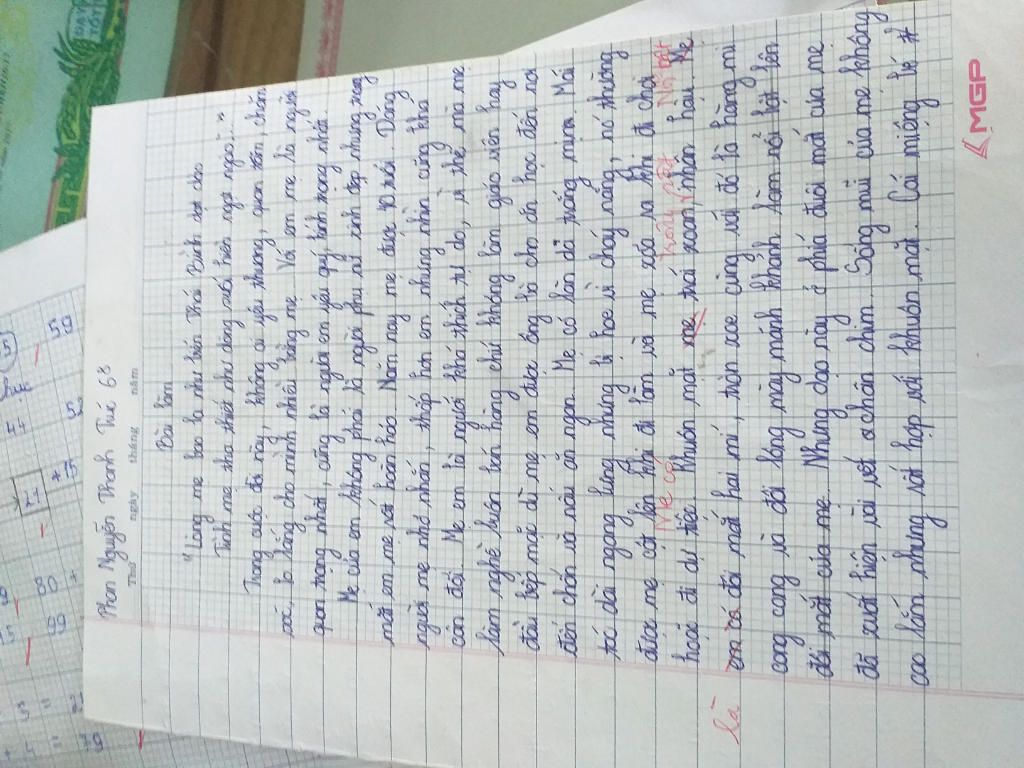 Phan Nguyễn Thanh Trúc 6B
Thứ ngày tháng năm
Bài làm
"Lòng mẹ bao la như biển Thái Bình dạt dào
Tình mẹ tha thiết như dòng suối hiền ngọt ngào..."
Trong cuộc đời này, không ai yêu thương, quan tâm, chăm
sóc, lo lắng cho mình nhiều bằng mẹ. Với em mẹ là người
quan trọng nhất, cũng là người em yêu quý, kính trọng nhất.
Mẹ của em không phải là người phụ nữ xinh đẹp nhưng trong
mắt em mẹ rất hoàn hảo. Năm nay mẹ được 40 tuổi. Dáng
người mẹ nhỏ nhắn, thấp hơn em nhưng nhìn cũng khá
cân đối. Mẹ em là người khá thích tự do, vì thế mà mẹ
làm nghề buôn bán hàng chứ không làm giáo viên hay
đầu bếp mặc dù mẹ em được ông bà cho ăn học đến nơi
đến chốn và nấu ăn ngon. Mẹ có làn da trắng mịn. Mái
tóc dài ngang lưng nhưng bị hoe vì cháy nắng, nó thường
được mẹ cột lên khi đi làm và mẹ xõa ra khi đi chơi
Mẹ có Nổi bật
hoặc đi dự tiệc. Khuôn mặt mẹ trái xoan, nhân hậu. Mẹ
em có đôi mắt hai mí, tròn xoe cùng với đó là hàng mi
là
cong cong và đôi lông mày mảnh khảnh làm nổi bật lên
đôi mắt của mẹ. Nhưng dạo này ở phía đuôi mắt của mẹ
đã xuất hiện vài vết chân chim. Sống mũi của mẹ không
cao lắm nhưng rất hợp với khuôn mặt. Cái miệng bé
MGP
5
59
44
52
21
+15
80 +
99
+ 4 = 79
DẠY
TỐT